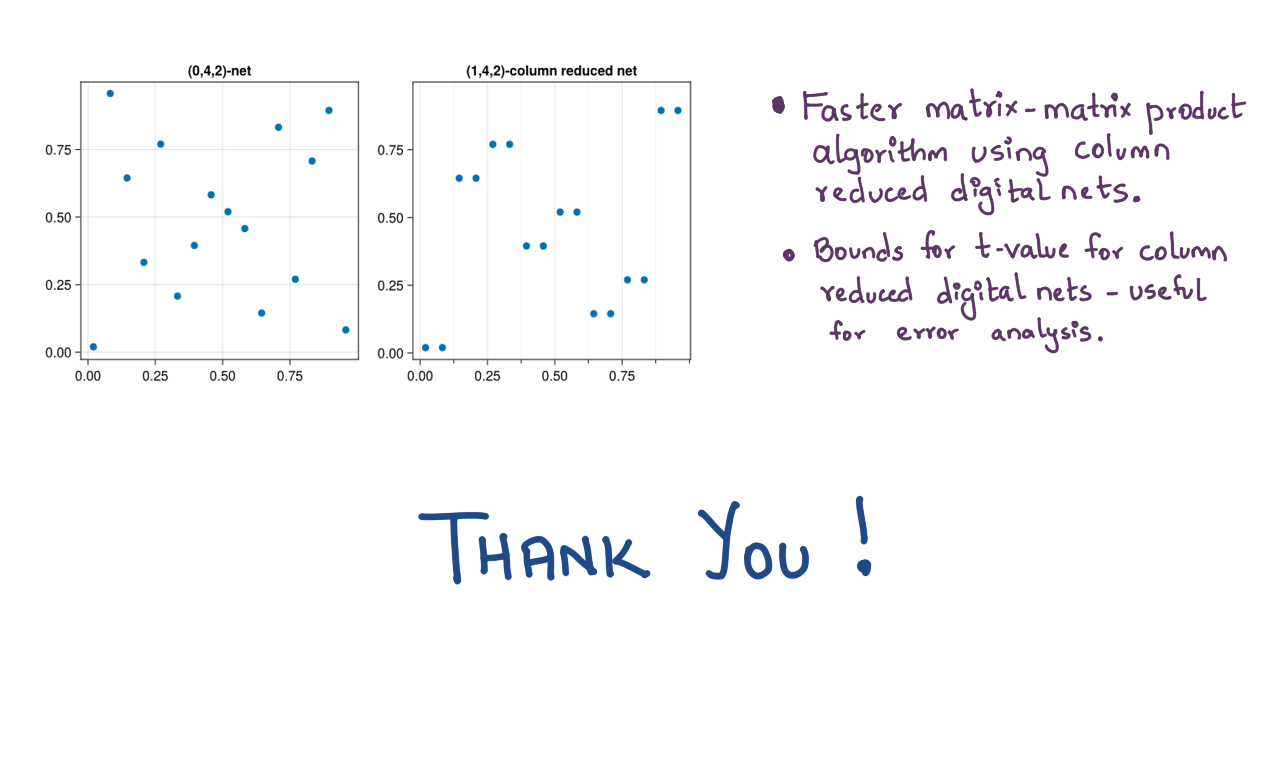 (0,4,2)-net
0.75
0.50
0.25
0.00
0.00 0.25 0.50 0.75
(1,4,2)-column reduced net
0.75
0.50
0.25
0.00
0.00 0.25 0.50 0.75
• Faster matrix-matrix product
algorithm using column
reduced digital nets.
• Bounds for t-value for column
reduced digital nets - useful
for error analysis.
THANK YOU !